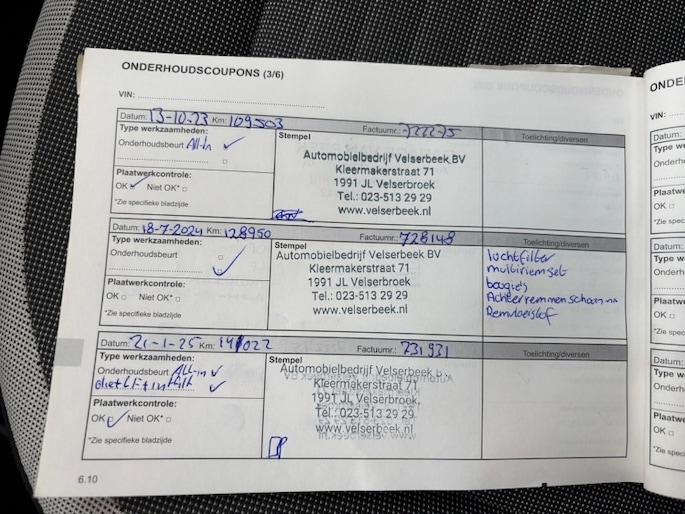 ONDERHOUDSCOUPONS (3/6)
VIN:
Datum: 13-10-23 Km: 109503 Factuurnr.: 722275
Type werkzaamheden: Stempel Toelichting/diversen
Onderhoudsbeurt All-in ✓
Automobielbedrijf Velserbeek BV
Kleermakerstraat 71
1991 JL Velserbroek
Tel.: 023-513 29 29
www.velserbeek.nl
Plaatwerkcontrole:
OK ✓ Niet OK* □
*Zie specifieke bladzijde
Datum: 18-7-2024 Km: 128950 Factuurnr.: 728148
Type werkzaamheden: Stempel Toelichting/diversen
Onderhoudsbeurt □
✓
Automobielbedrijf Velserbeek BV
Kleermakerstraat 71
1991 JL Velserbroek
Tel.: 023-513 29 29
www.velserbeek.nl
luchtfilter
multiriemset
bougies
Achterremmen schoon
Remvloeistof
Plaatwerkcontrole:
OK □ Niet OK* □
*Zie specifieke bladzijde
Datum: 21-1-25 Km: 141022 Factuurnr.: 731931
Type werkzaamheden: Stempel Toelichting/diversen
Onderhoudsbeurt All-in ✓
Automobielbedrijf Velserbeek BV
Kleermakerstraat 71
1991 JL Velserbroek
Tel.: 023-513 29 29
www.velserbeek.nl
Plaatwerkcontrole:
OK ✓ Niet OK* □
*Zie specifieke bladzijde
6.10
VIN:
Datum:
Plaatwe
OK □
*Zie spec
Datum:
Plaatwer
OK □
*Zie spec
Datum:
Plaatwer
OK □
*Zie spec